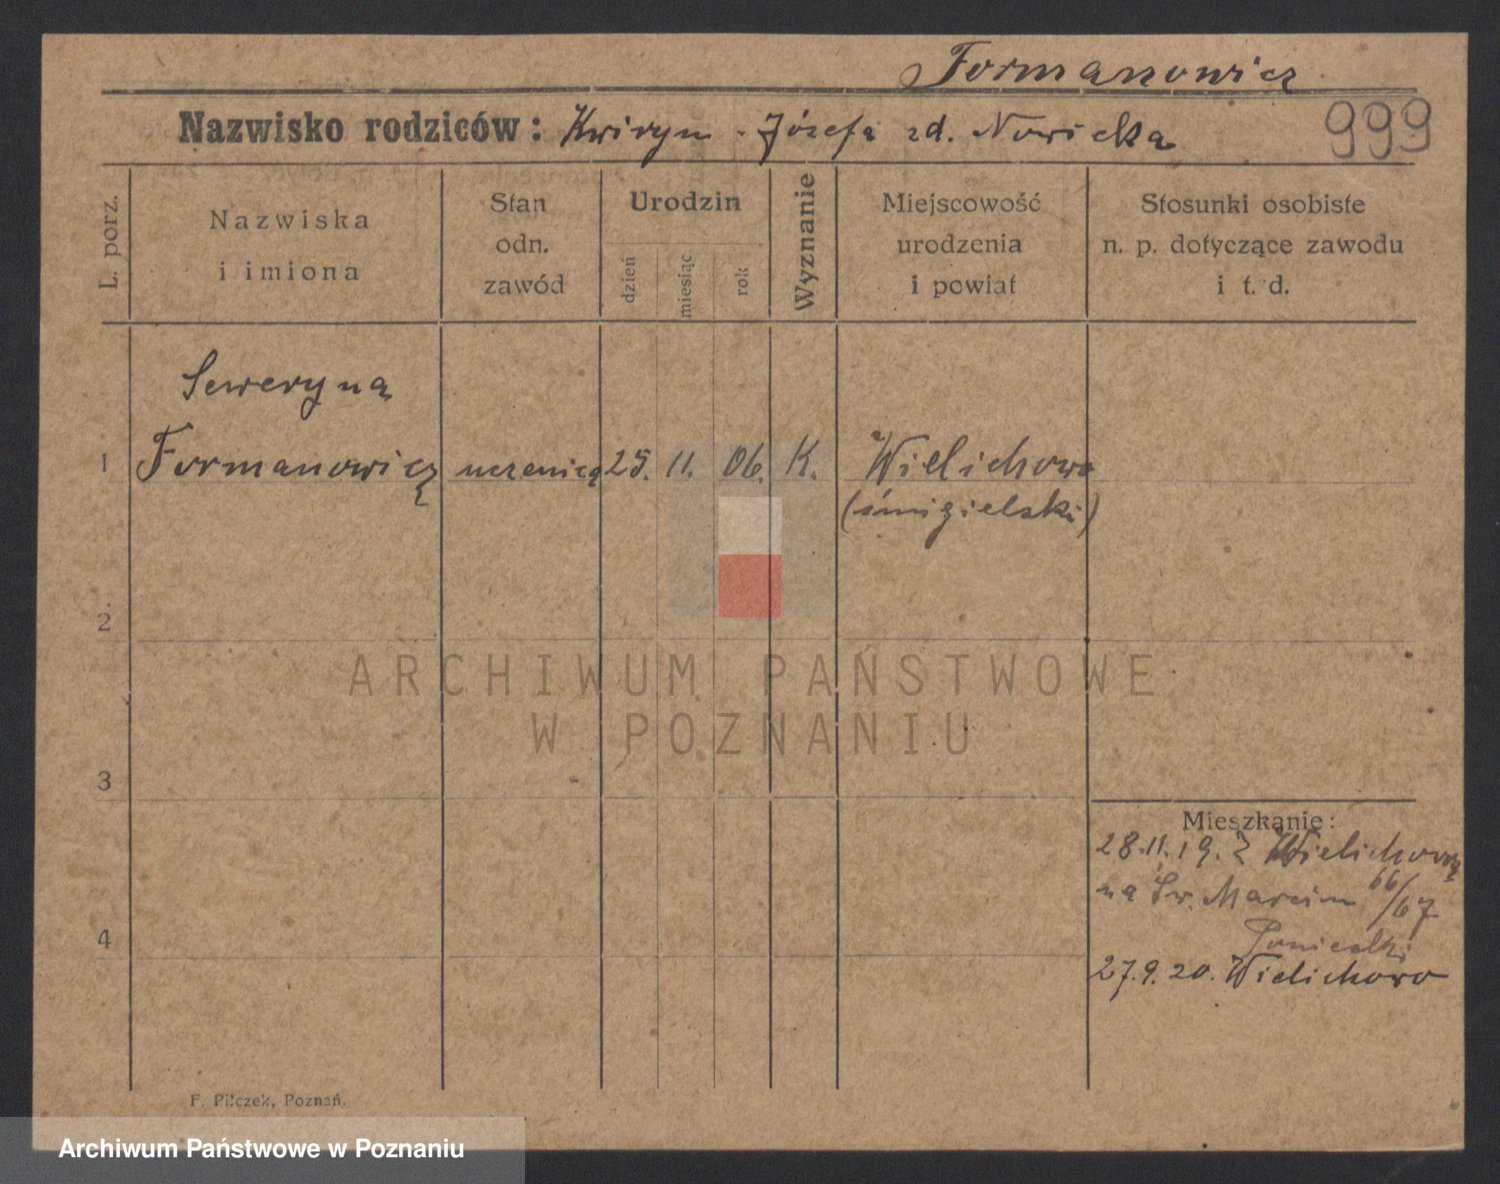 Formanowicz
Nazwisko rodziców: Kwiryn - Józefa zd. Nowicka
999
L. porz.
Nazwiska
i imiona
Stan
odn.
zawód
Urodzin
dzień
miesiąc
rok
Wyznanie
Miejscowość
urodzenia
i powiat
Stosunki osobiste
n. p. dotyczące zawodu
i t. d.
Seweryna
1 Formanowicz uczenica 25. 11. 06. K. Wielichowo
(śmigielski)
2
ARCHIWUM PAŃSTWOWE
W POZNANIU
3
Mieszkanie:
28.11.19. Z Wielichowa
na Św. Marcin 66/67
4
27.9.20. Wielichowo
F. Pilczek, Poznań.
Archiwum Państwowe w Poznaniu